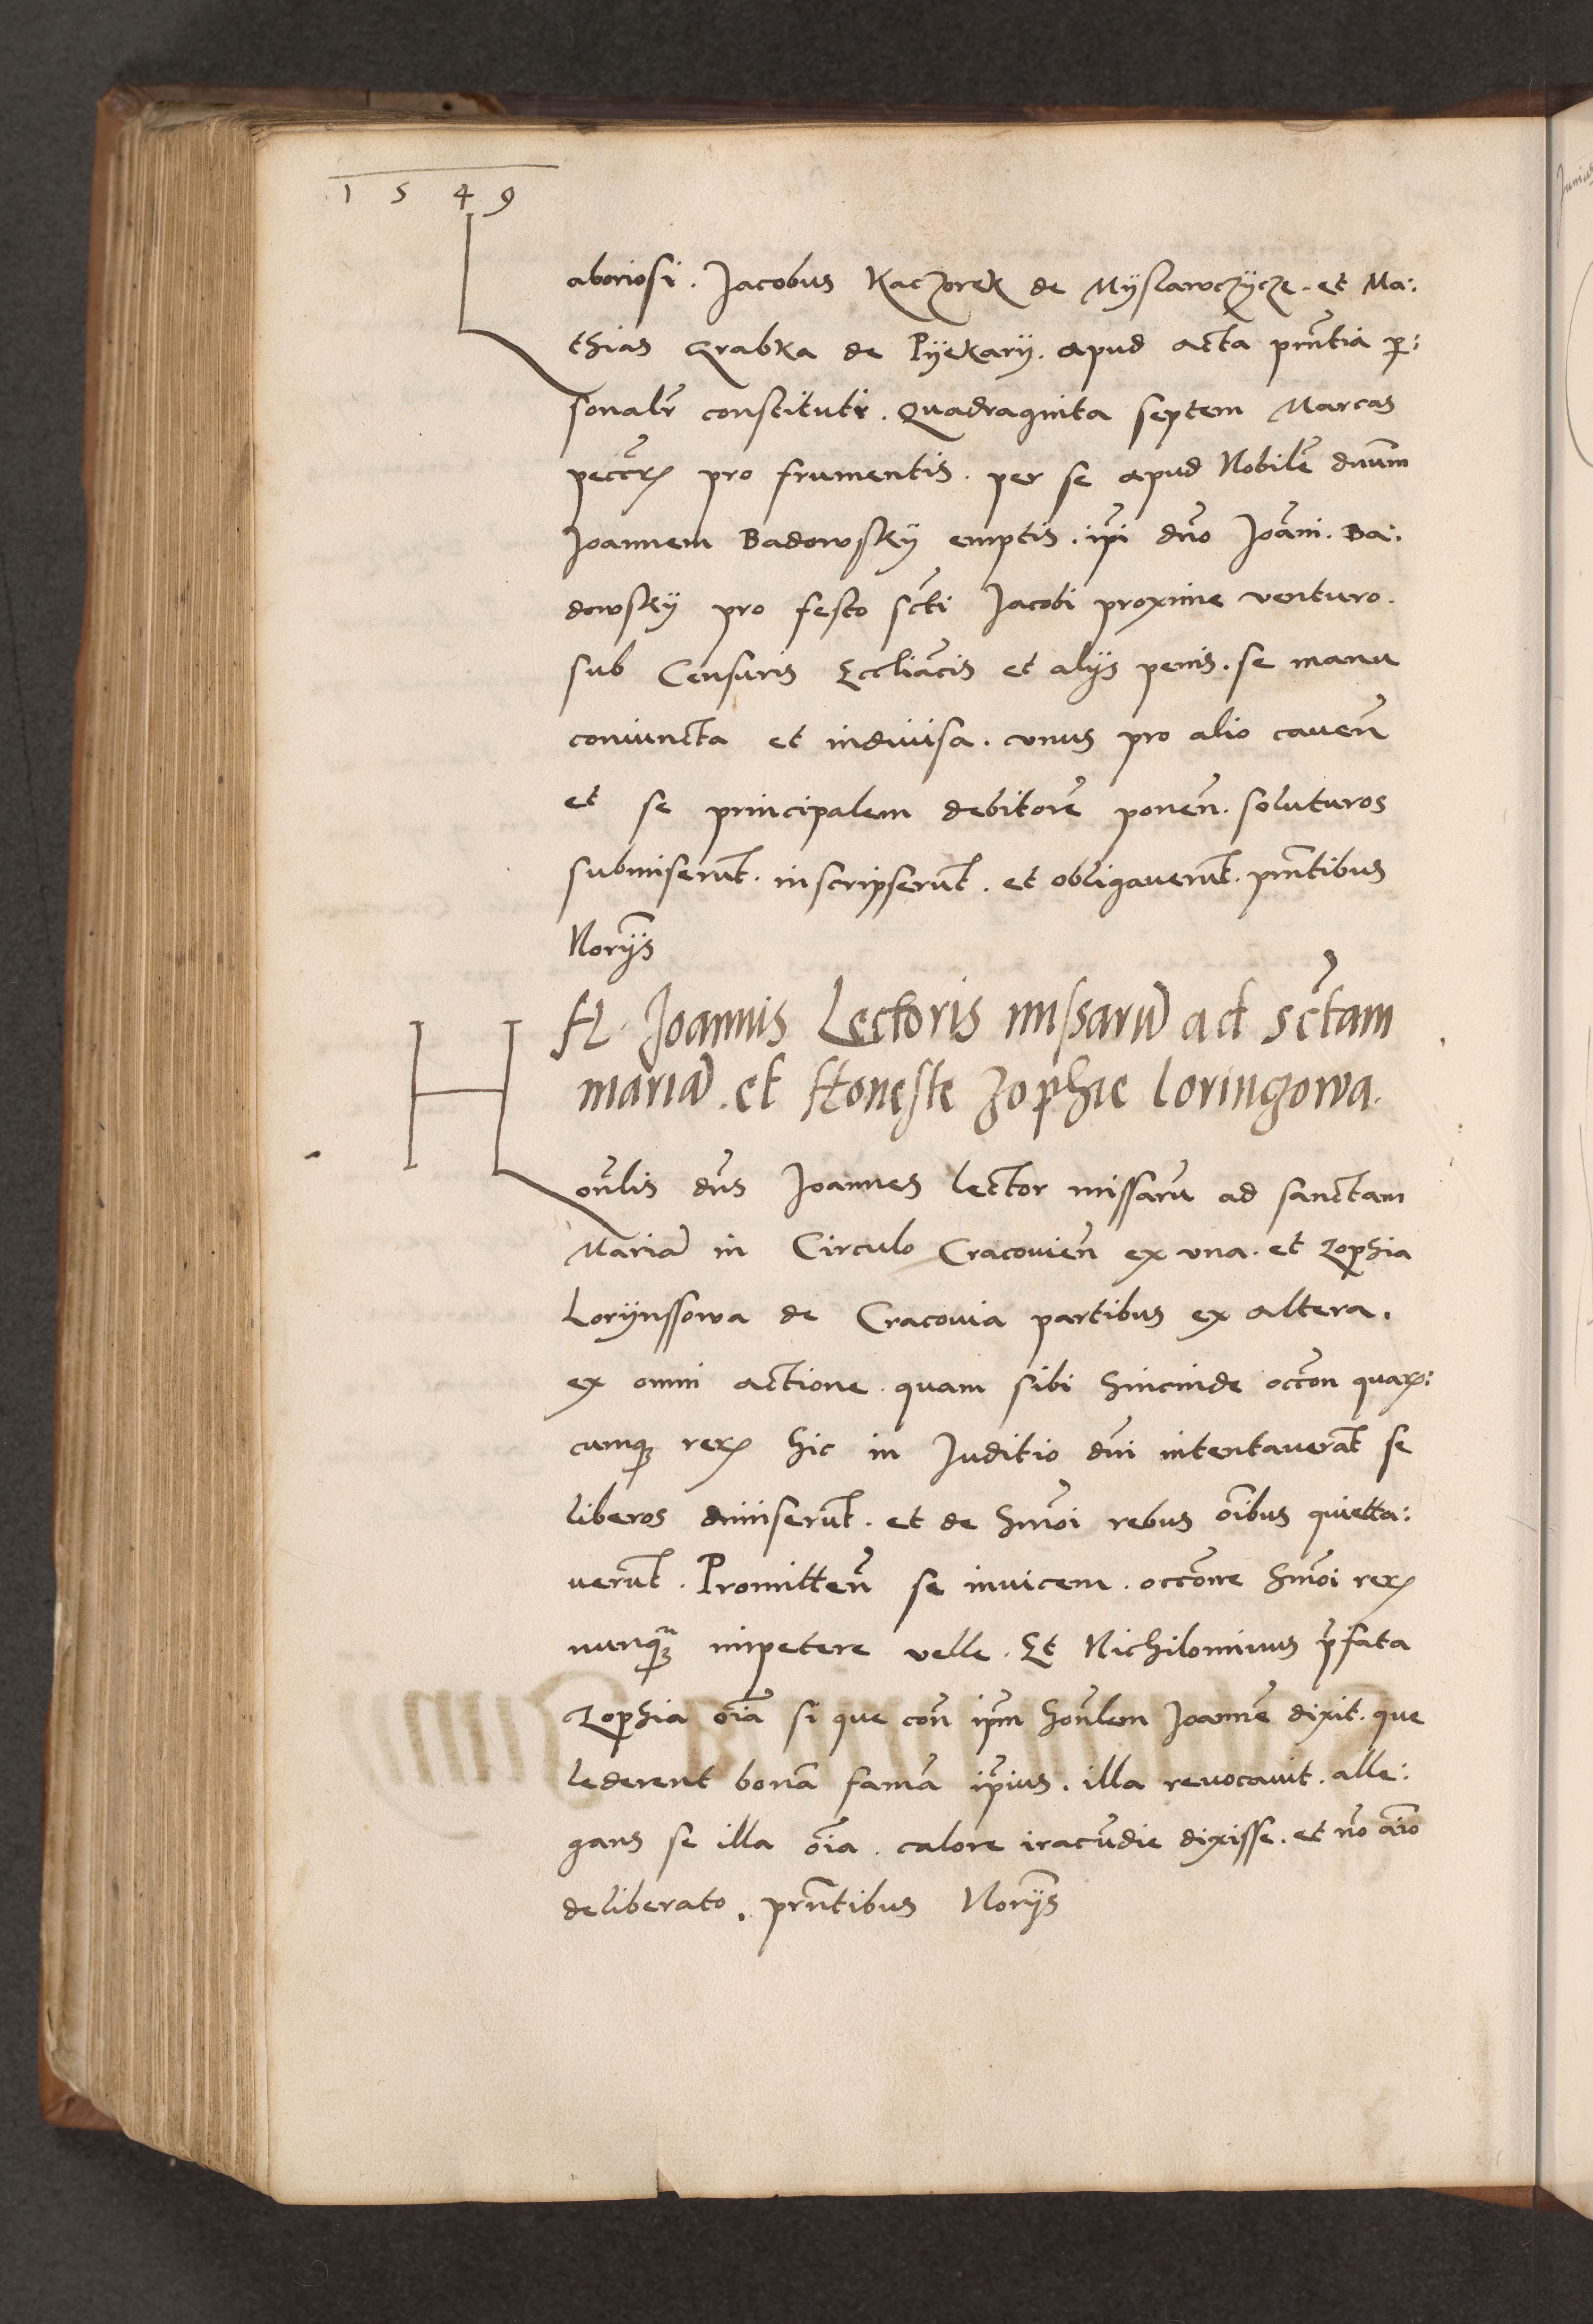 1 5 4 9
Laboriosi. Jacobus Kaczorek de Myslawczycze. et Ma:
thias Grabka de Pyekary. apud acta pñtia p:
sonalr constituti. Quadraginta septem Marcas
pecc̃r pro frumentis. per se apud Nobilẽ dnũm
Joannem Badowsky emptis. ip̃i dño Joãni. Ba:
dowsky pro festo sc̃ti Jacobi proxime venturo.
sub Censuris Eccliãcis et alÿs penis. se manu
coniuncta et indiuisa. vnus pro alio caueñ
et se principalem debitorẽ poneñ. soluturos
submiserũt. inscripserũt. et obligauerũt. pñtibus
Norÿs
H. Joannis Lectoris missarũ ad sc̃tam
mariã. et Honeste Zophie Loringowa.
Hoñlis dñs Joannes lector missarũ ad sanctam
Mariã in Circulo Cracovieñ ex vna. et Zophia
Lorynssowa de Cracouia partibus ex altera.
ex omni actione. quam sibi hincinde occõn quar:
cumq rer hic in Juditio dñi intentauerãt se
liberos dimiserũt. et de hmõi rebus oĩbus quietta:
uerũt. Promitteñ se inuicem. occõne hmõi rer
nunq̃ impetere velle. Et Nichilominus p̃fata
Zophia oĩa si que coñ ip̃m hoñlem Joannẽ dixit. que
lederent bonã famã ip̃ius. illa reuocauit. alle:
gans se illa oĩa. calore iracũdie dixisse. et nõ aĩo
deliberato. pñtibus Norÿs